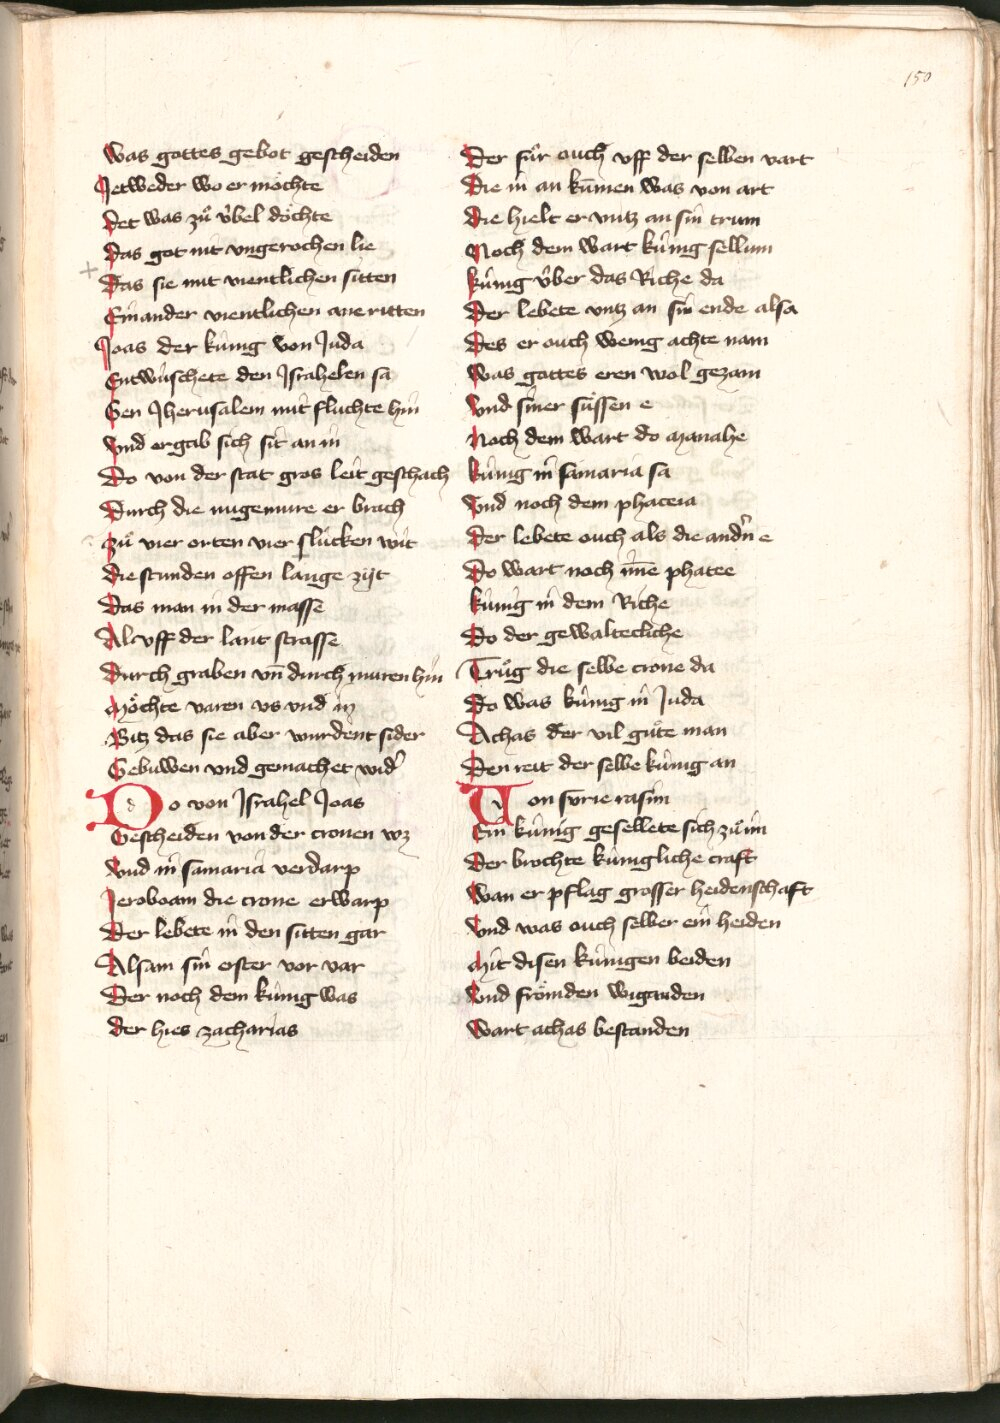 150
Was gottes gebot gescheiden
Jetweder wo er möchte
Det was zuͦ v́bel döchte
Das got nit vngerochen lie
Das sie mit vientlichen sitten
Einander vientlichen ane ritten
Joas der kúnig von Juda
Entwúschete den Jsrahelen sa
Gen Jherusalem mit fluchte hin
Vnd ergab sich sit an in
Do von der stat gros leit geschach
Durch die mure er brach
Zuͦ vier orten vier slúcken wit
Die stunden offen lange zijt
Das man in der masse
Al vff der lant strasse
Durch graben vn̄ durch muren hin
Möchte varen vs vnd in
Bitz das sie aber wurdent sider
Gebuwen vnd gemachet wid͛
Do von Jsrahel Joas
Gescheiden von der cronen wz
Vnd in samaria verdarp
Jeroboam die crone erwarp
Der lebete in den sitten gar
Alsam sin erster vor var
Der noch dem kúnig was
der hies zacharias
Der fuͦr ouch vff der selben vart
Die in an kūmen was von art
Die hielt er vntz an sin trum
Noch dem wart kúnig sellum
kúnig v́ber das Riche da
Der lebete vntz an sin ende alsa
Des er ouch wenig achte nam
Was gottes eren wol gezam
Vnd siner suͤssen e
Noch dem wart do manahe
kúnig in samaria sa
Vnd noch dem phaceia
Der lebete ouch als die andn̄ e
Do wart noch ime phatee
kúnig in dem Riche
Do der gewaltecliche
Truͦg die selbe crone da
Do was kúnig in Juda
Achas der vil guͦte man
Den reit der selbe kúnig an
Von syrie rasim
Ein kúnig gesellete sich zuͦ im
Der brochte kúnigliche craft
Wan er pflag grosser heidenschaft
Vnd was ouch selber ein heiden
Mit disen kúnigen beiden
Vnd frömden wiganden
Wart achas bestanden